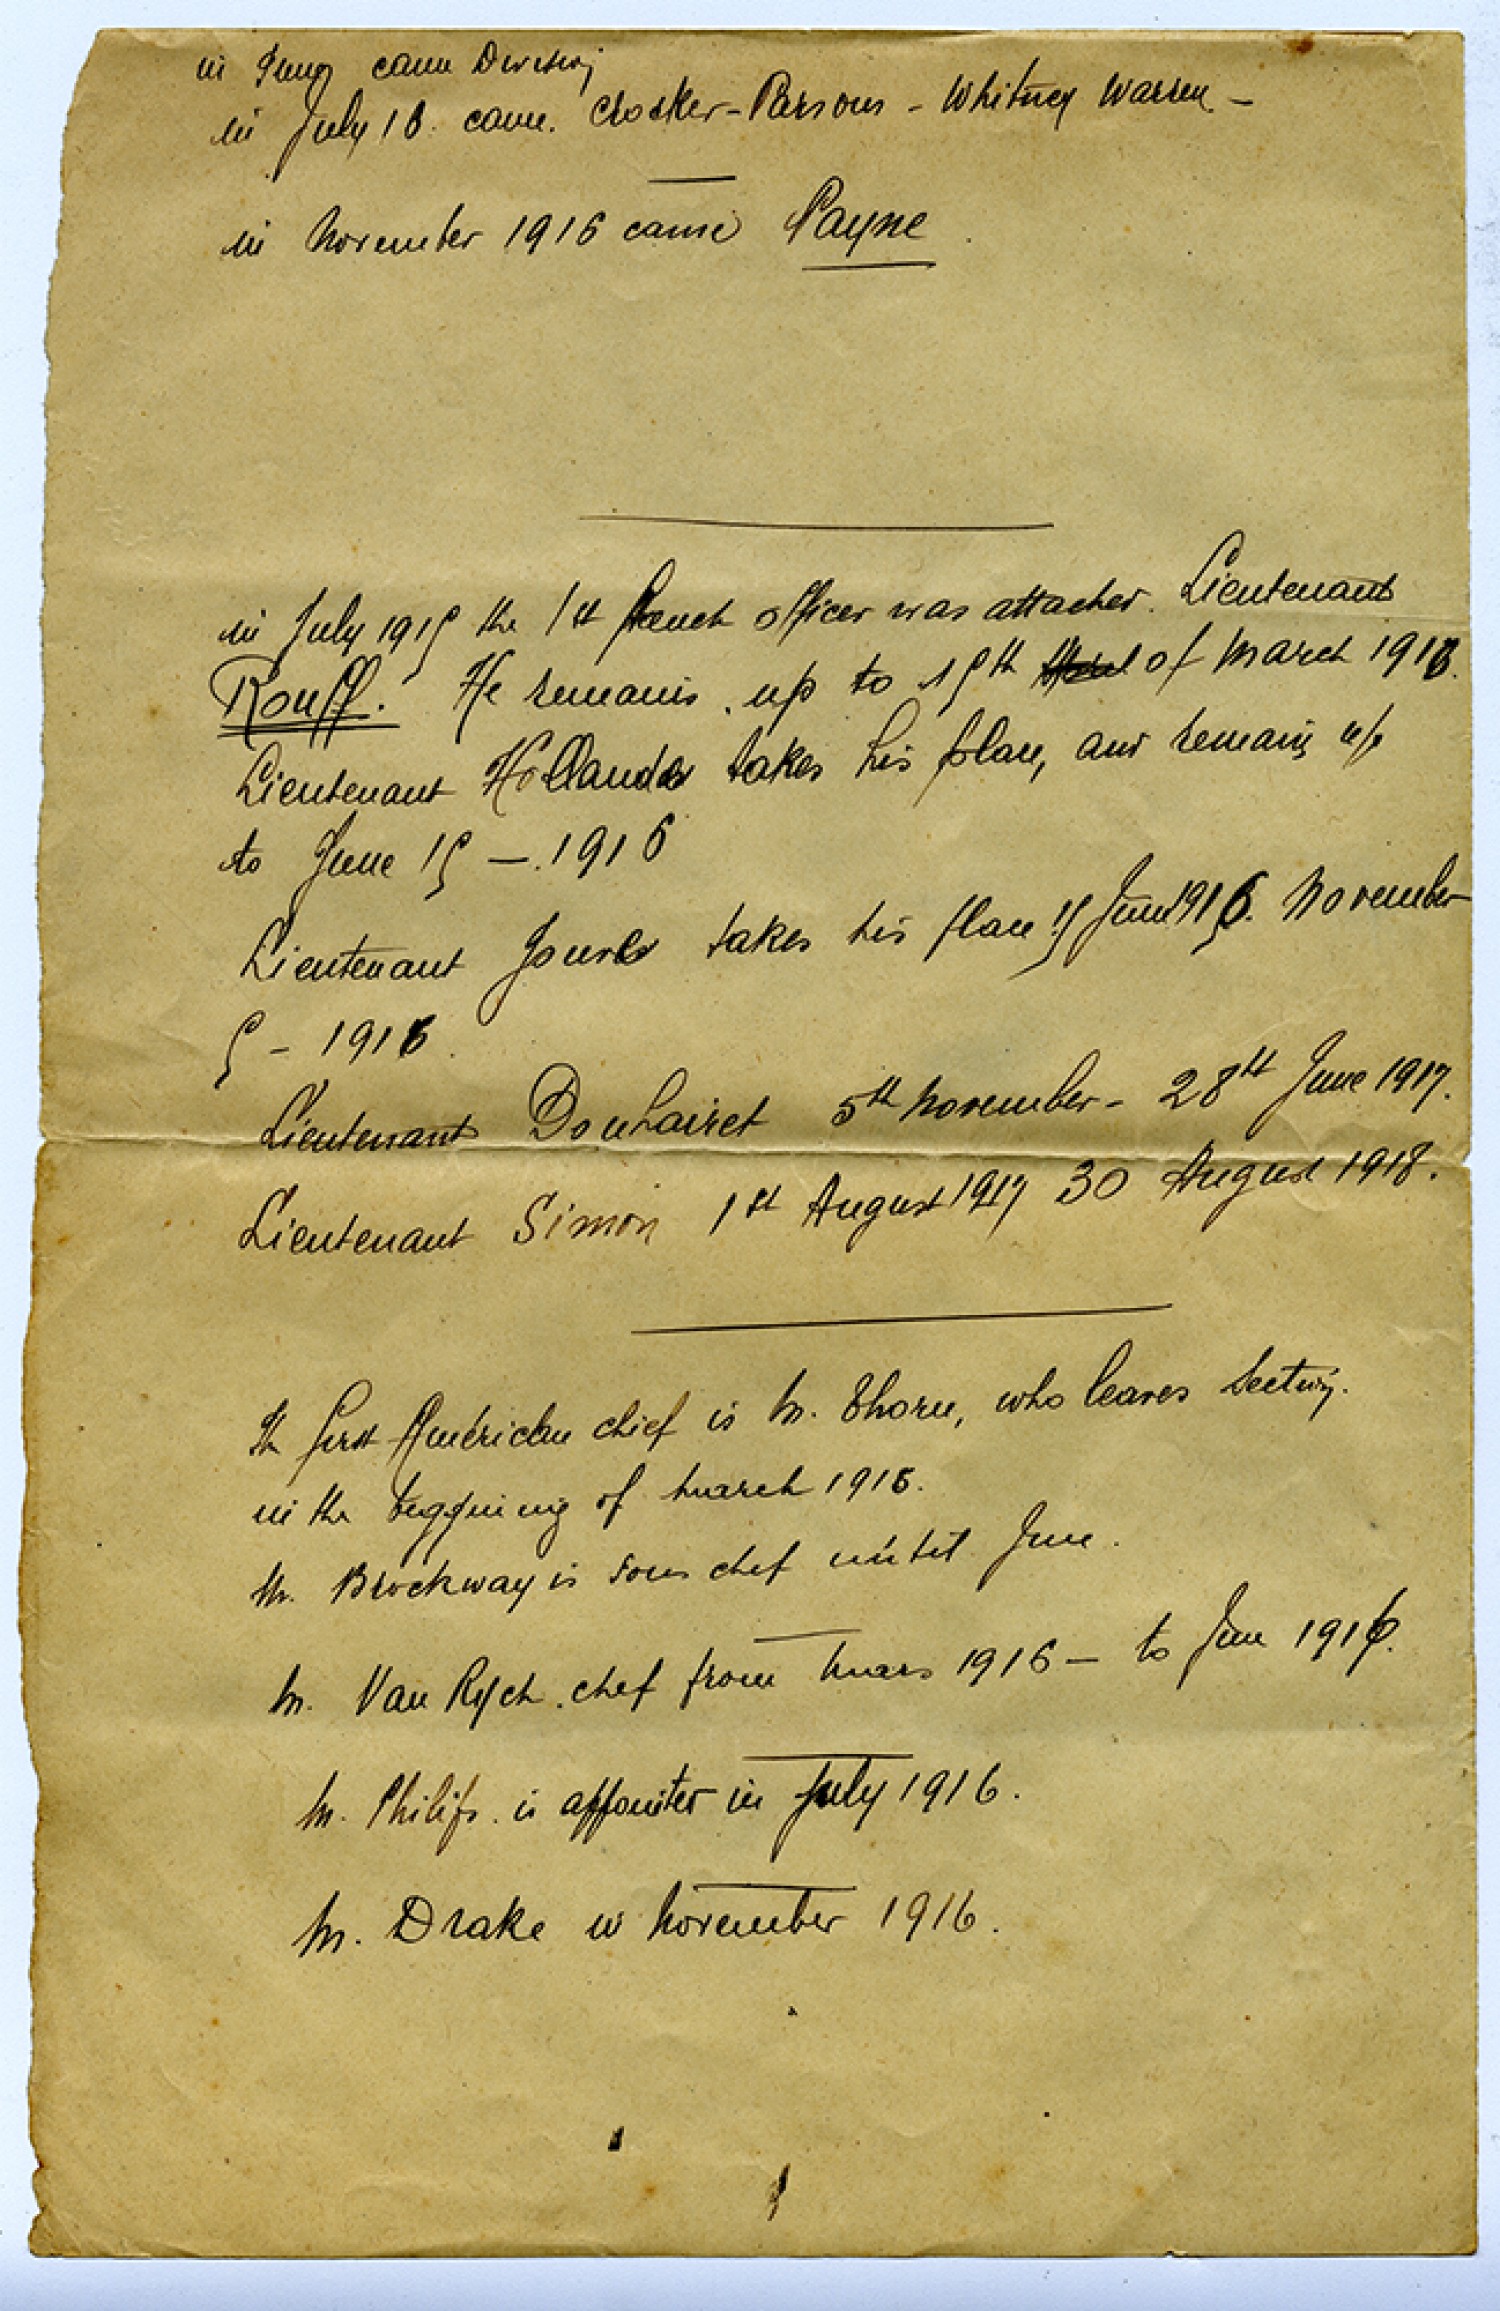 in June came
in July 16 came. Crocker - Parsons - Whitney Warren -
in November 1916 came Payne.
in July 1915 the 1st french officer was attached. Lieutenant
Rouff. He remains up to 15th of March 1916.
Lieutenant Hollande takes his place, and remains up
to June 15 - 1916
Lieutenant takes his place 15 June 1916. November
5 - 1916.
Lieutenant Douhairet 5th November - 28th June 1917.
Lieutenant Simon 1st August 1917 30 August 1918.
The first American chief is M. Thorn, who leaves Section.
in the beggining of march 1916.
M. Brockway is sous chef until June.
M. Van Rych. chef from mars 1916 - to June 1916.
M. Philips. is appointed in July 1916.
M. Drake in November 1916.